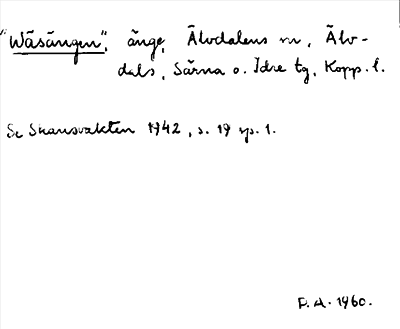 "Wäsängen", änge, Älvdalens sn, Älv-
dals, Särna o. Idre tg, Kopp. l.
Se Skansvakten 1942, s. 19 sp. 1.
P.A. 1960.